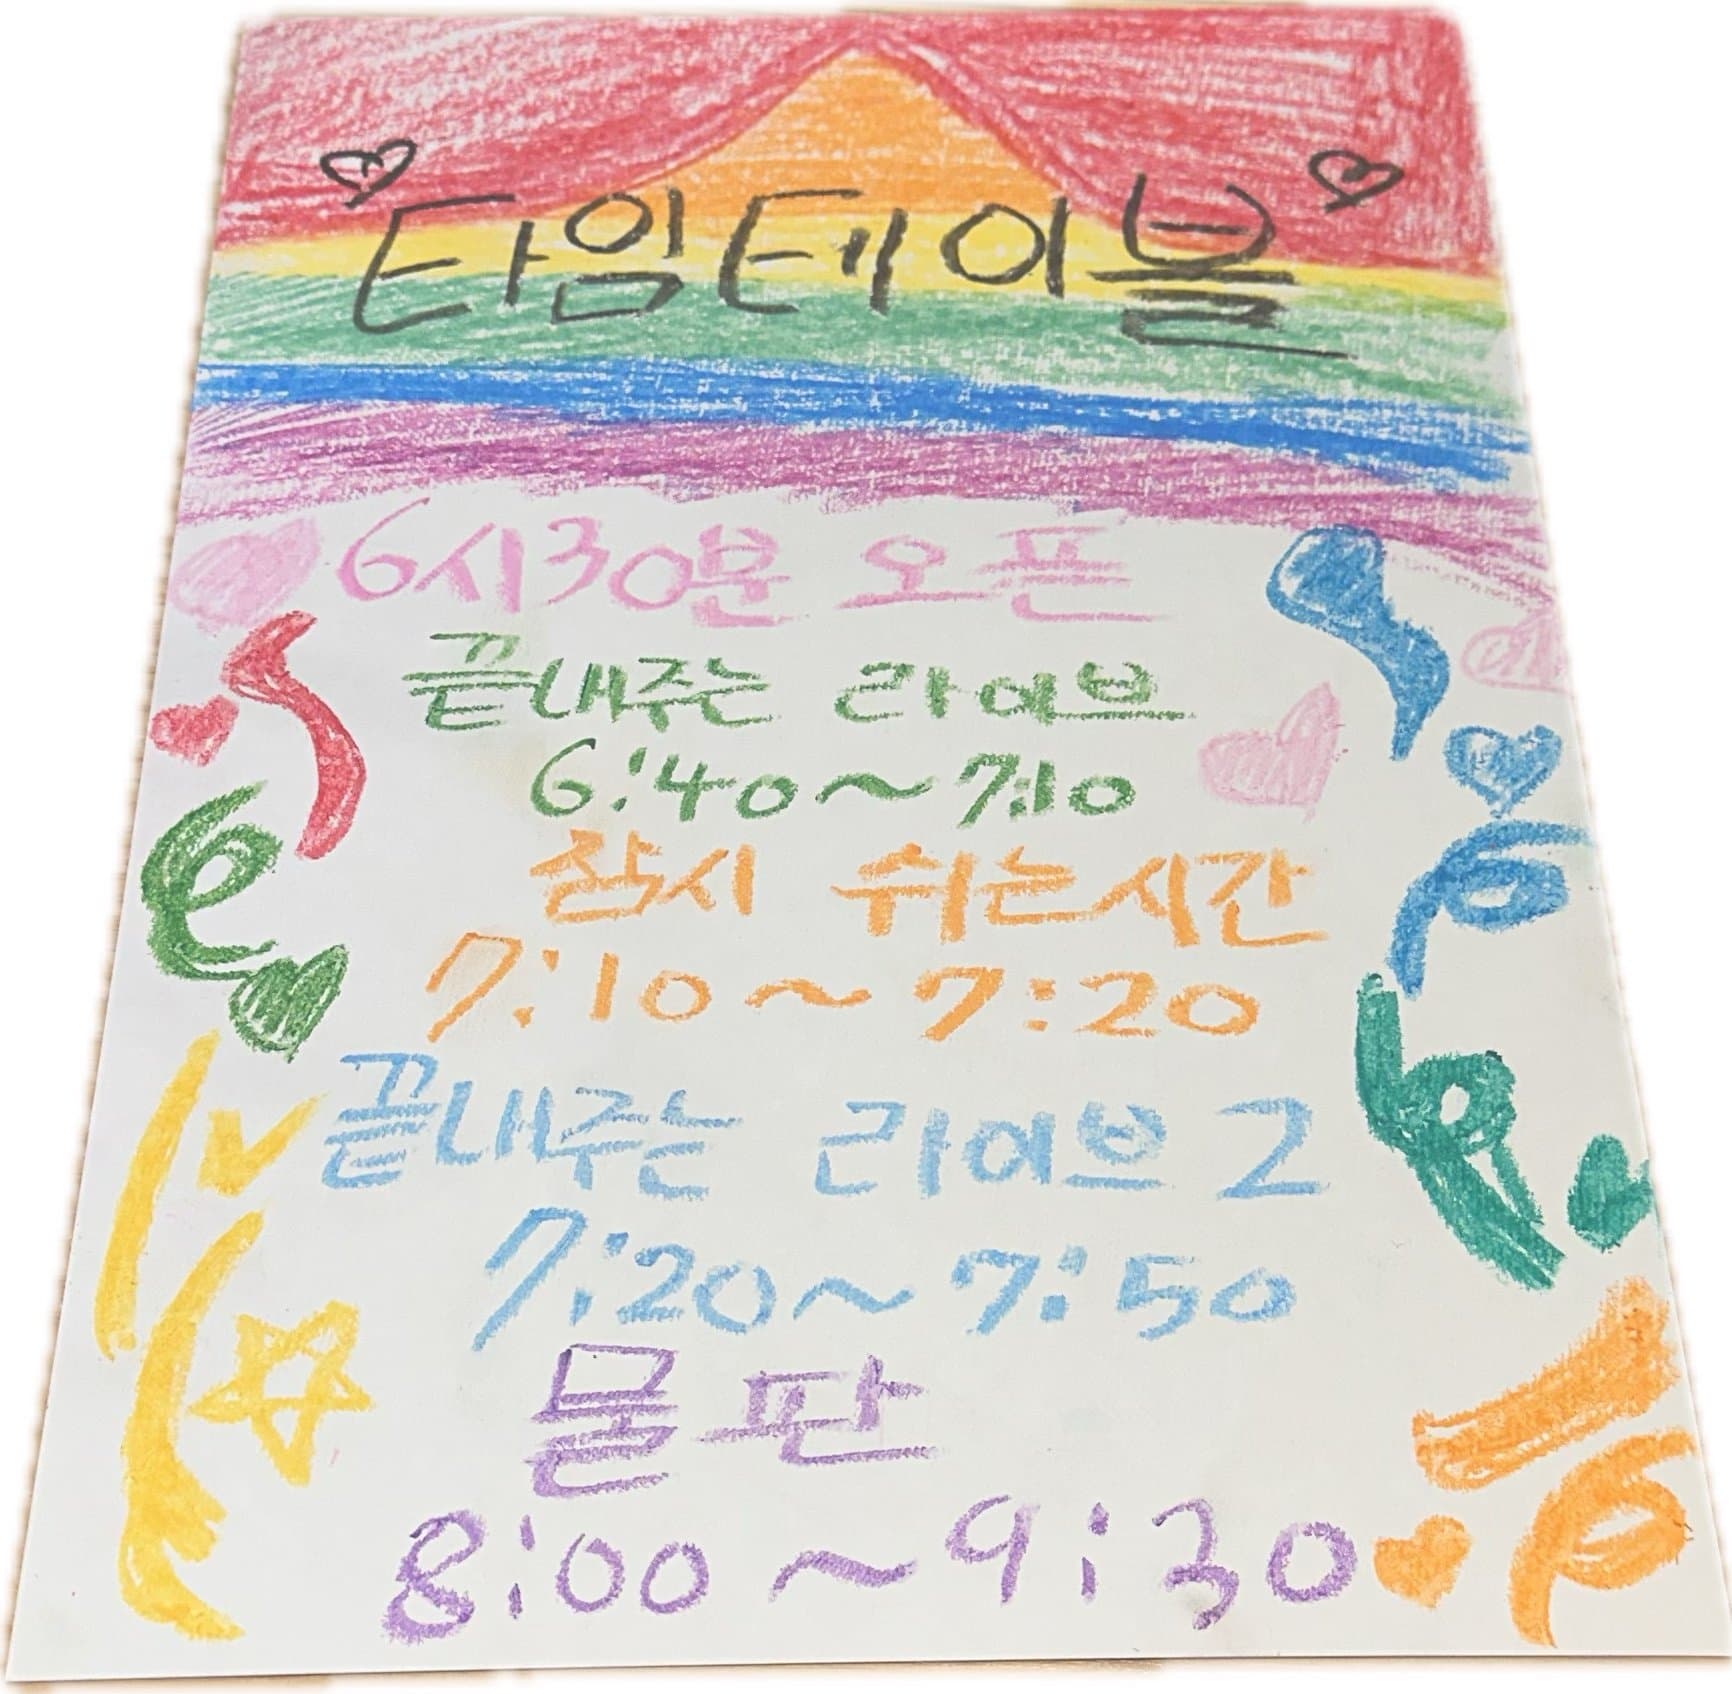 타임테이블
6시30분 오픈
끝내주는 라이브
6:40~7:10
잠시 쉬는시간
7:10~7:20
끝내주는 라이브 2
7:20~7:50
물판
8:00~9:30